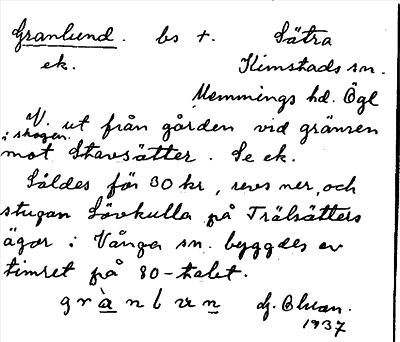 Granlund. bs +. Sätra
ek. Kimstads sn.
Memmings hd. Ögl
V. ut från gården vid gränsen
i skogen
mot Stavsätter. Se ek.
Såldes för 30 kr, revs ner, och
stugan Lövkulla på Trälsätters
ägor i Vånga sn. byggdes av
timret på 80-talet.
grànlun
1937